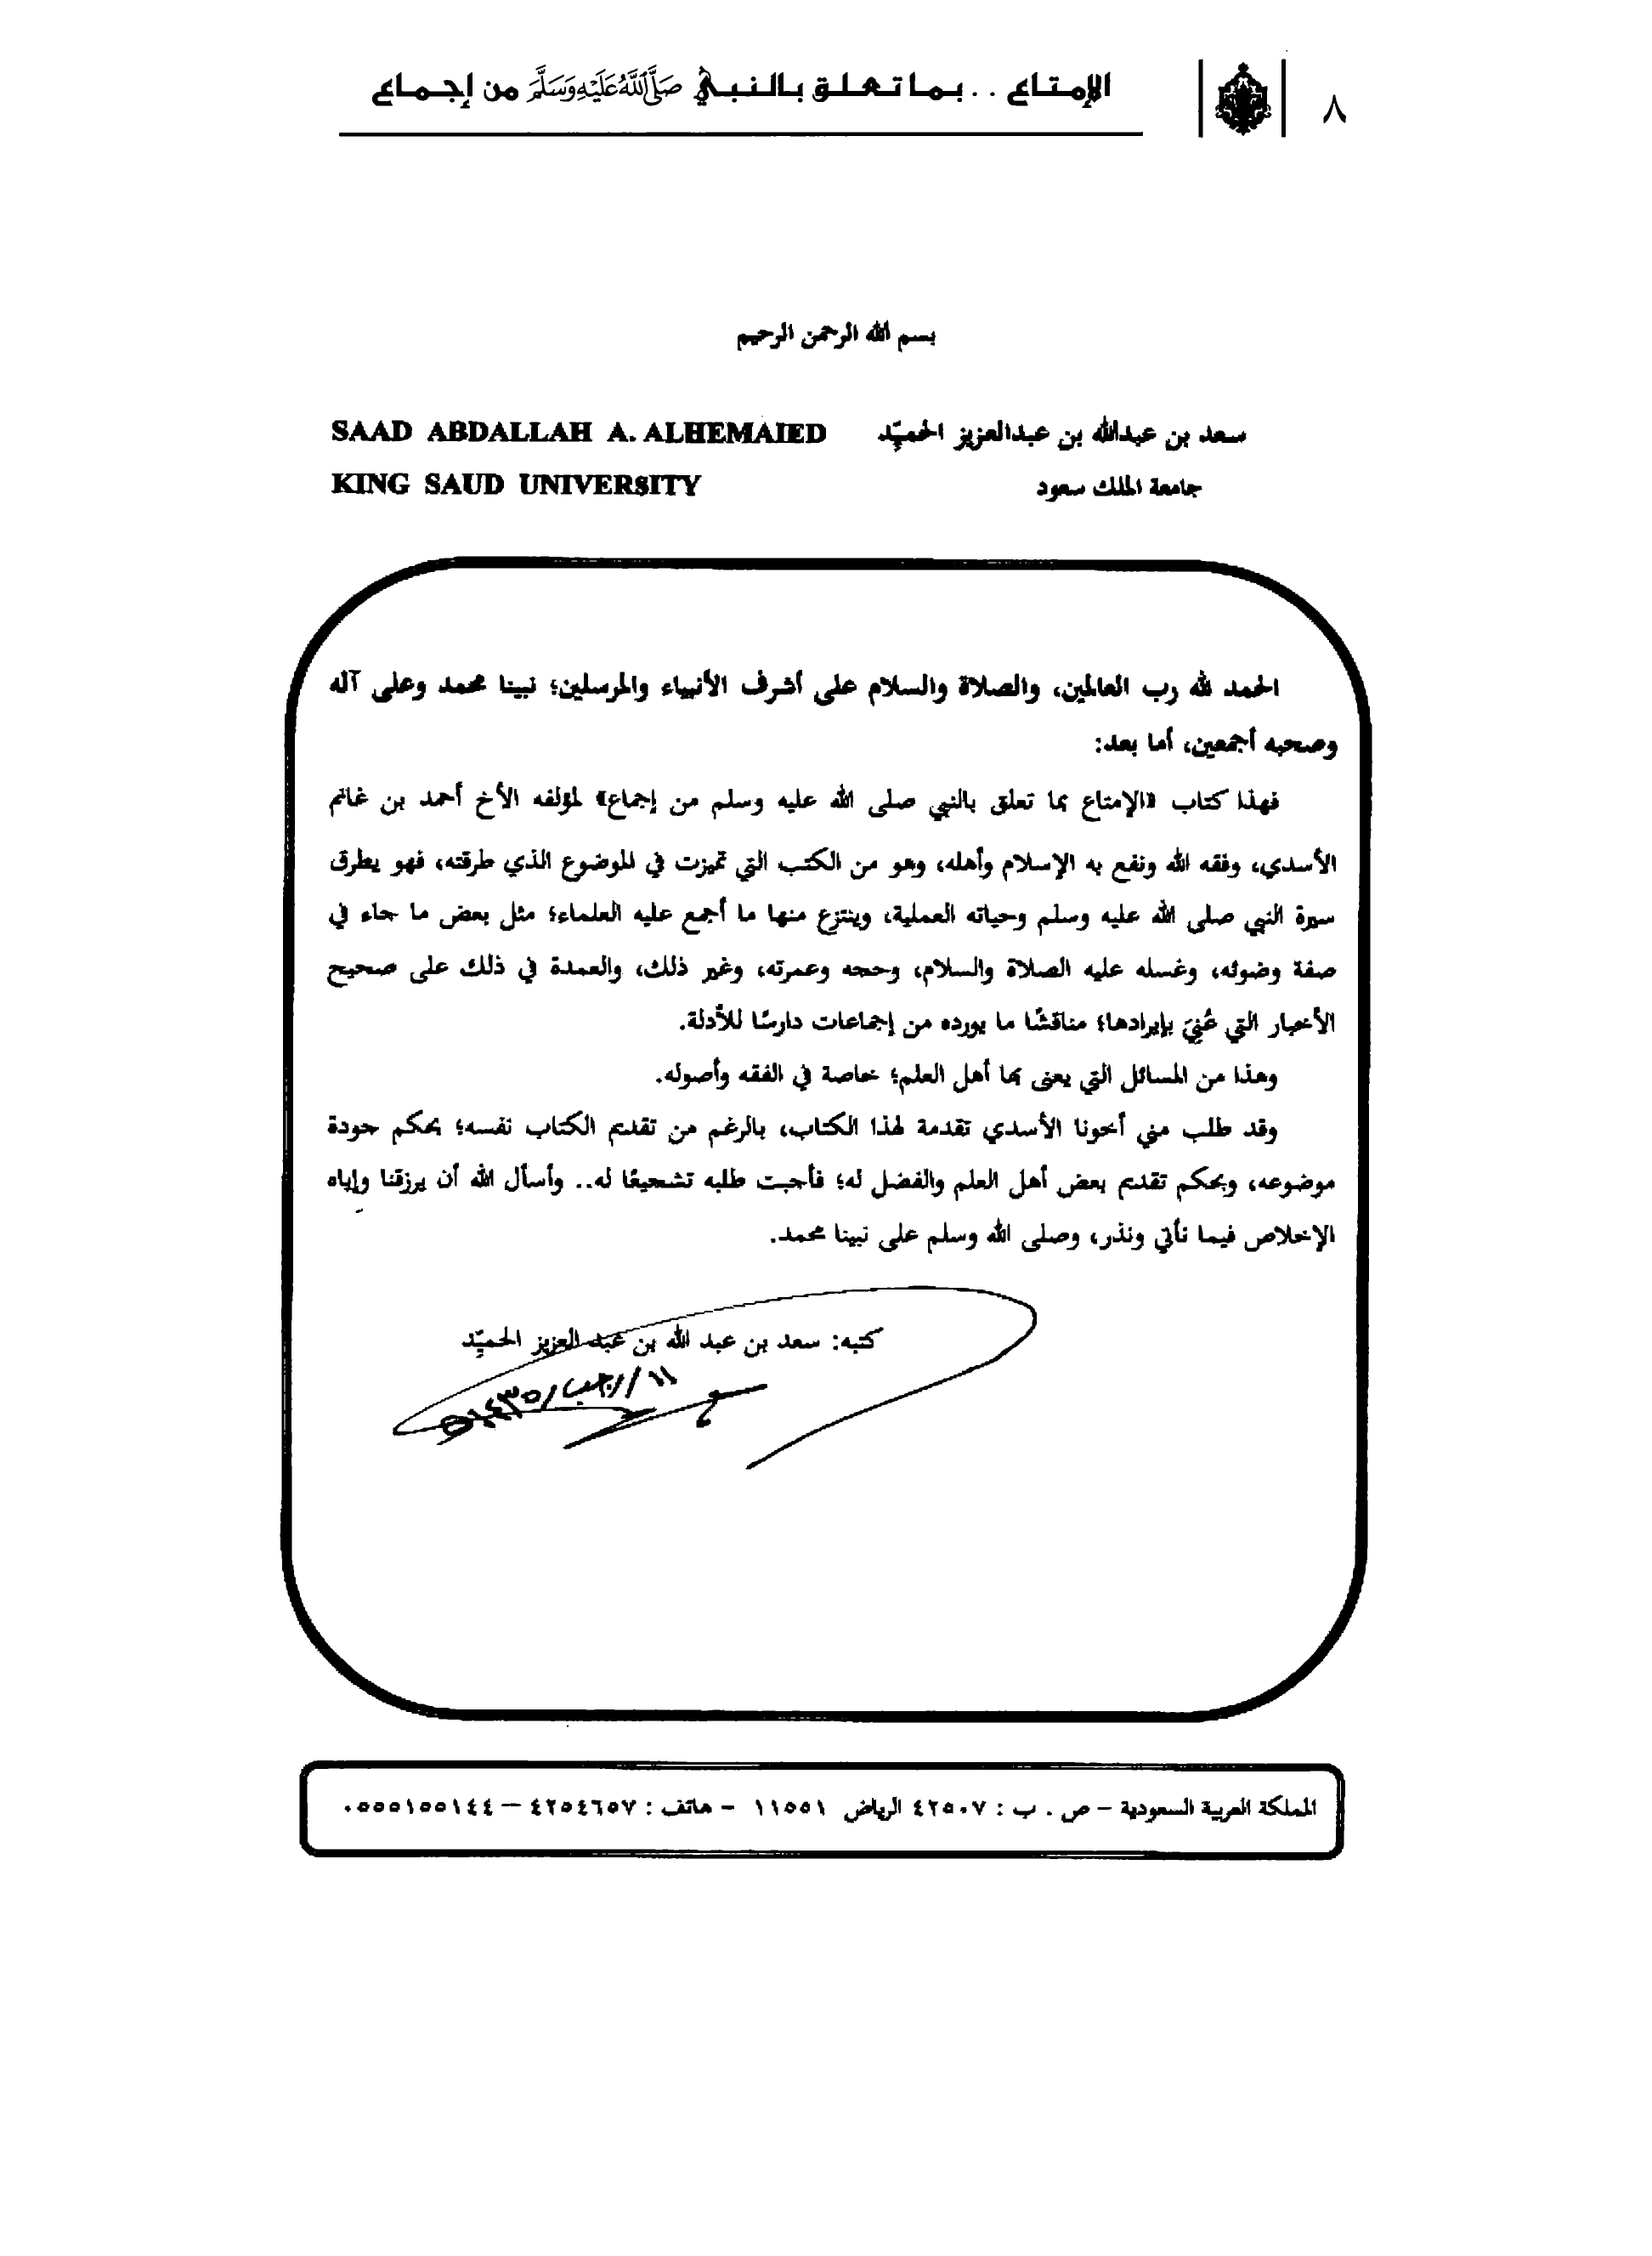 ٨
الإمتاع .. بما تعلق بالنبي صَلَّى اللَّهُ عَلَيْهِ وَسَلَّمَ من إجماع
بسم الله الرحمن الرحيم
سعد بن عبدالله بن عبدالعزيز الحميِّد
SAAD ABDALLAH A. ALHEMAIED
جامعة الملك سعود
KING SAUD UNIVERSITY
الحمد لله رب العالمين، والصلاة والسلام على أشرف الأنبياء والمرسلين؛ نبينا محمد وعلى آله
وصحبه أجمعين، أما بعد:
فهذا كتاب «الإمتاع بما تعلق بالنبي صلى الله عليه وسلم من إجماع» لمؤلفه الأخ أحمد بن غانم
الأسدي، وفقه الله ونفع به الإسلام وأهله، وهو من الكتب التي تميزت في الموضوع الذي طرقته، فهو يطرق
سيرة النبي صلى الله عليه وسلم وحياته العملية، وينتزع منها ما أجمع عليه العلماء؛ مثل بعض ما جاء في
صفة وضوئه، وغسله عليه الصلاة والسلام، وحجه وعمرته، وغير ذلك، والعمدة في ذلك على صحيح
الأخبار التي عُنِيَ بإيرادها؛ مناقشًا ما يورده من إجماعات دارسًا للأدلة.
وهذا من المسائل التي يعنى بها أهل العلم؛ خاصة في الفقه وأصوله.
وقد طلب مني أخونا الأسدي تقدمة لهذا الكتاب، بالرغم من تقديم الكتاب نفسه؛ بحكم جودة
موضوعه، وبحكم تقديم بعض أهل العلم والفضل له؛ فأجبت طلبه تشجيعًا له.. وأسأل الله أن يرزقنا وإياه
الإخلاص فيما نأتي ونذر، وصلى الله وسلم على نبينا محمد.
كتبه: سعد بن عبد الله بن عبد العزيز الحميِّد
١١/رجب/١٤٣٥هـ
المملكة العربية السعودية – ص . ب : ٤٢٥٠٧ الرياض ١١٥٥١ – هاتف : ٤٢٥٤٦٥٧ – ٠٥٥٥١٥٥١٤٤